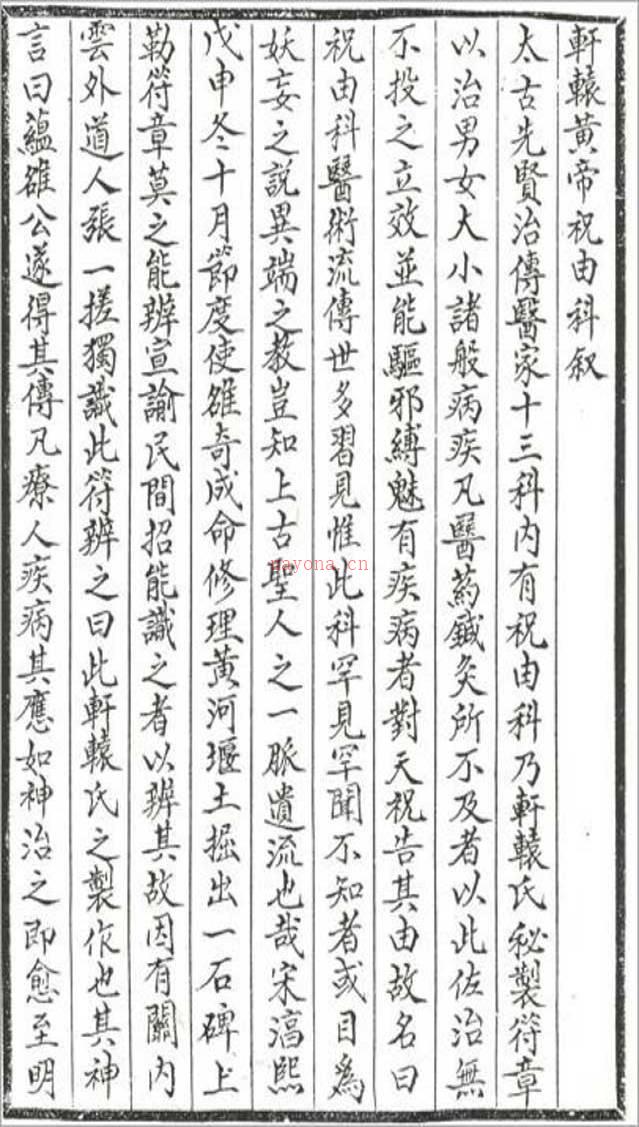 軒轅黃帝祝由科叙
太古先賢治傳醫家十三科内有祝由科乃軒轅氏秘製符章
以治男女大小諸般病疾凡醫葯鍼灸所不及者以此佐治無
不投之立效並能驅邪縛魅有疾病者對天祝告其由故名曰
祝由科醫術流傳世多習見惟此科罕見罕聞不知者或目爲
妖妄之說異端之教豈知上古聖人之一脈遺流也哉宋淳熙
戊申冬十月節度使雒奇成命修理黃河堰土掘出一石碑上
勒符章莫之能辨宣諭民間招能識之者以辨其故因有關内
雲外道人張一搓獨識此符辨之曰此軒轅氏之製作也其神
言曰蘊雒公遂得其傳凡療人疾病其應如神治之即愈至明
nayona.cn